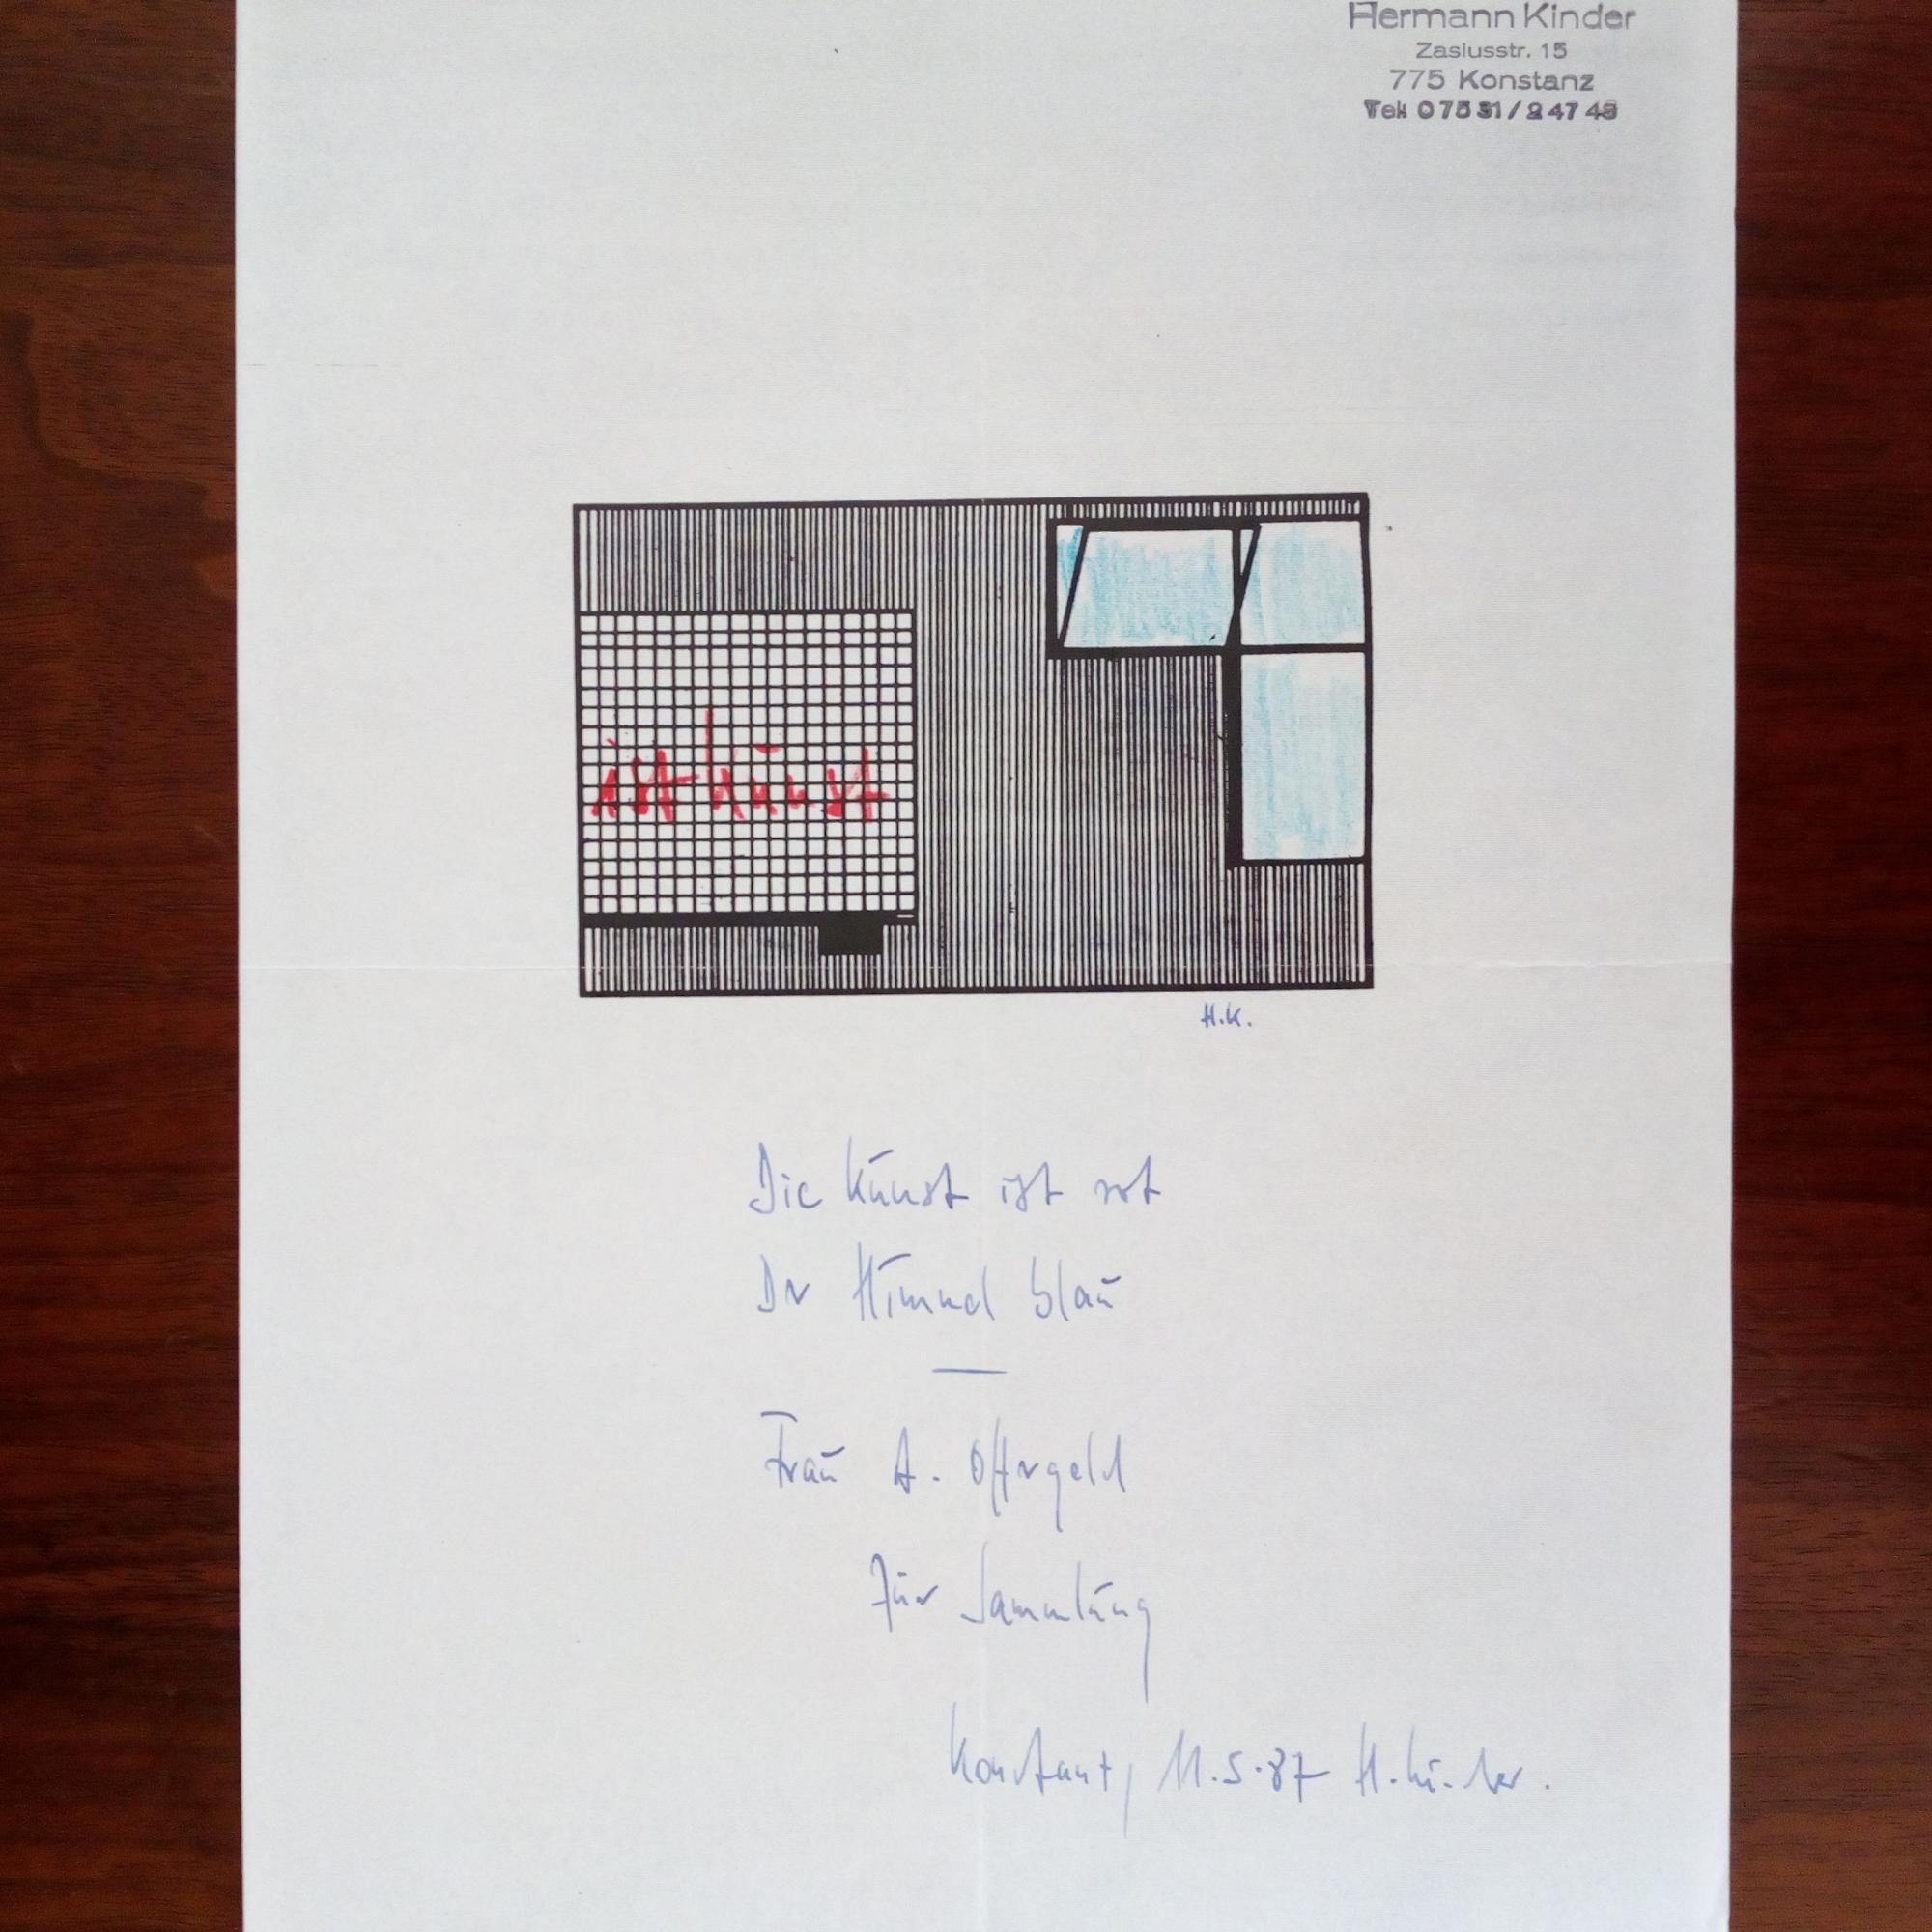 Hermann Kinder
Zasiusstr. 15
775 Konstanz
Tel 07531/24748
ist kunst
H.K.
Die Kunst ist rot
Der Himmel blau
Frau A. Offergeld
Für Sammlung
Konstanz, 11.5.87 H. Kinder.